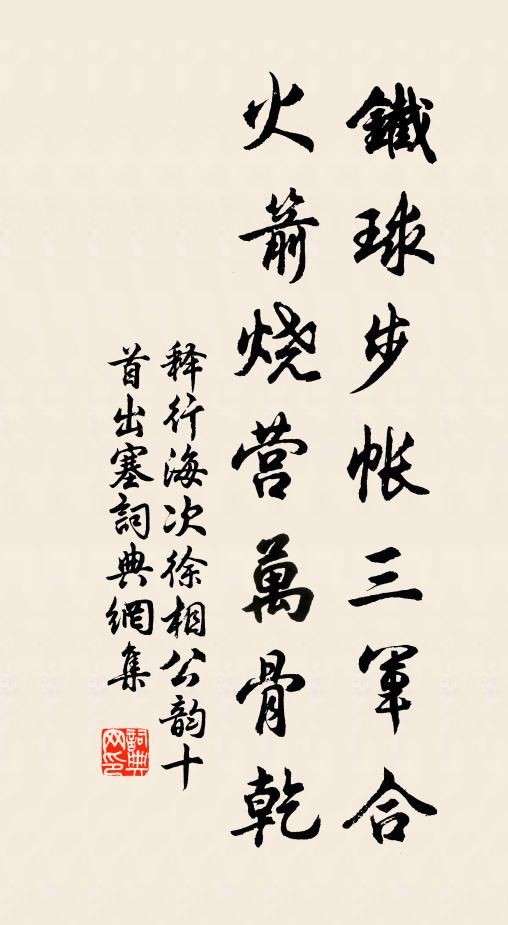 鐵球步帐三軍合
火箭烧营萬骨乾
释行海次徐相公韵十
首出塞詞典網集
詞典网印